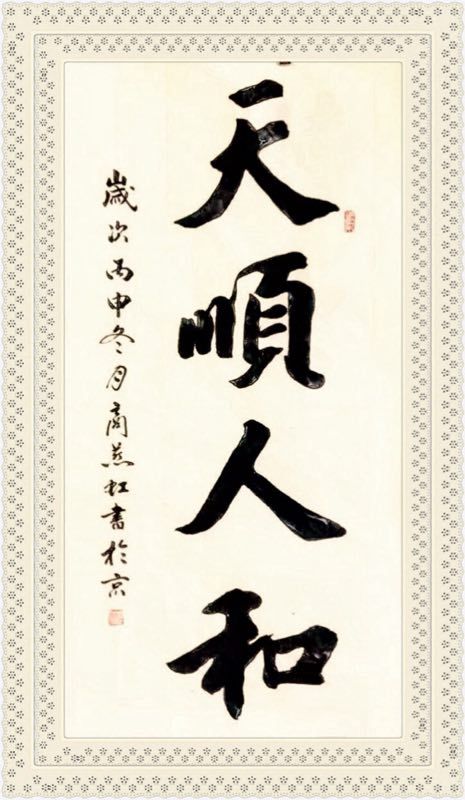 天順人和
歲次丙申冬月商燕虹書於京